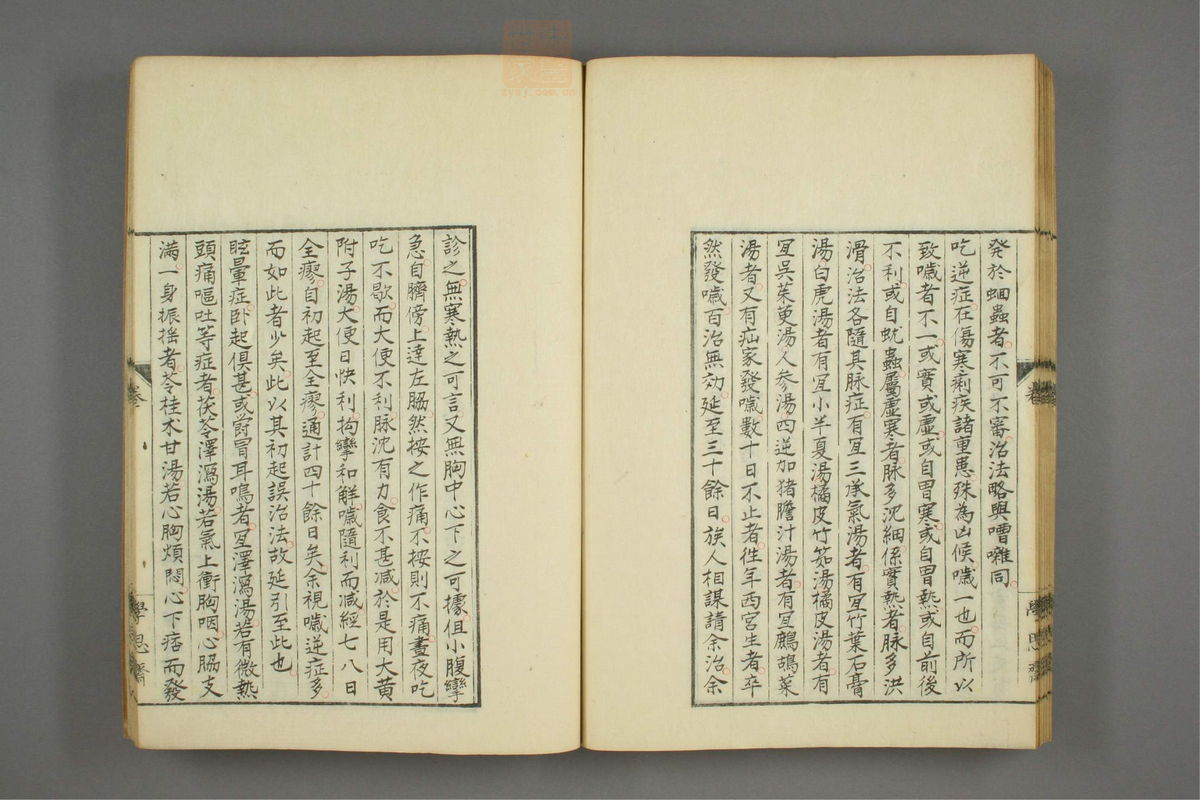 発於蛔蟲者不可不審治法略與嘈囃同
吃逆症在傷寒痢疾諸重患殊為凶候噦一也而所以
致噦者不一或實或虛或自胃寒或自胃熱或自前後
不利或自蚘蟲屬虛寒者脉多沈細係實熱者脉多洪
滑治法各隨其脉症有宜三承氣湯者有宜竹葉石膏
湯白虎湯者有宜小半夏湯橘皮竹筎湯橘皮湯者有
宜吳茱萸湯人參湯四逆加猪膽汁湯者有宜鷓鴣菜
湯者又有疝家發噦數十日不止者徃年西宮生者卒
然發噦百治無効延至三十餘日族人相謀請余治余
診之無寒熱之可言又無胸中心下之可據但小腹攣
急自臍傍上達左脇然按之作痛不按則不痛晝夜吃
吃不歇而大便不利脉沈有力食不甚减於是用大黄
附子湯大便日快利拘攣和解噦隨利而减經七八日
全瘳自初起至全瘳通計四十餘日矣余視噦逆症多
而如此者少矣此以其初起誤治法故延引至此也
眩暈症卧起俱甚或欝冒耳鳴者宜澤瀉湯若有微熱
頭痛嘔吐等症者茯苓澤瀉湯若氣上衝胸咽心脇支
滿一身振揺者苓桂朮甘湯若心胸煩悶心下痞而發
學思齋